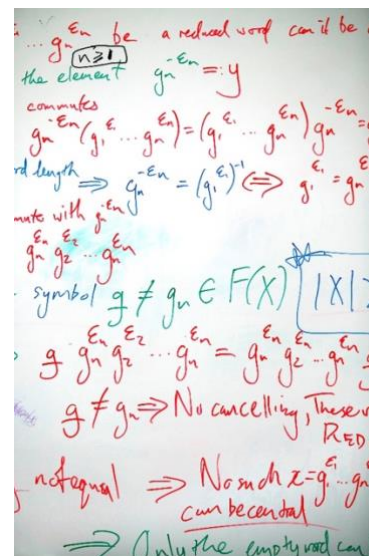 ... gₙ^εₙ be a reduced word can it be
n≥1
the element gₙ^-εₙ =: y
commutes
gₙ^-εₙ (g₁^ε₁ ... gₙ^εₙ) = (g₁^ε₁ ... gₙ^εₙ) gₙ^-εₙ =
rd length ⇒ gₙ^-εₙ = (g₁^ε₁)⁻¹ ⇔ g₁^ε₁ = gₙ^εₙ
mute with gₙ^-εₙ
gₙ^εₙ g₂^ε₂ ... gₙ^εₙ
symbol g ≠ gₙ ∈ F(X) |X| >
g gₙ^εₙ g₂^ε₂ ... gₙ^εₙ = gₙ^εₙ g₂^ε₂ ... gₙ^εₙ g
g ≠ gₙ ⇒ No cancelling, These
RED
not equal ⇒ No such x = g₁^ε₁ ... gₙ
can be central
⇒ Only the empty word can